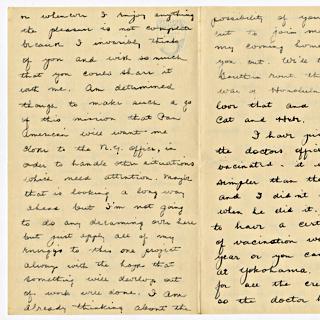 or whenever I enjoy anything
the pleasure is not complete
because I invariably think
of you and wish so much
that you could share it
with me. Am determined
though to make such a go
of this mission that Pan
American will want me
close to the N.Y. office, in
order to handle other situations
which need attention. Maybe
that is looking a long way
ahead but I'm not going
to do any dreaming over here
but just apply all of my
energies to this one project
along with the hope that
something will develop out
of work well done. I am
already thinking about the
possibility of your
out to join m
my coming home
you out. We'd t
route the
was a Honolulu
loor that and
Cat and Her.
I have ju
the doctors offic
vaccinated. it
simpler than the
and I didn't
when he did it.
to have a cert
of vaccination w
year or you ca
at Yokohama.
for all the cre
as the doctor h